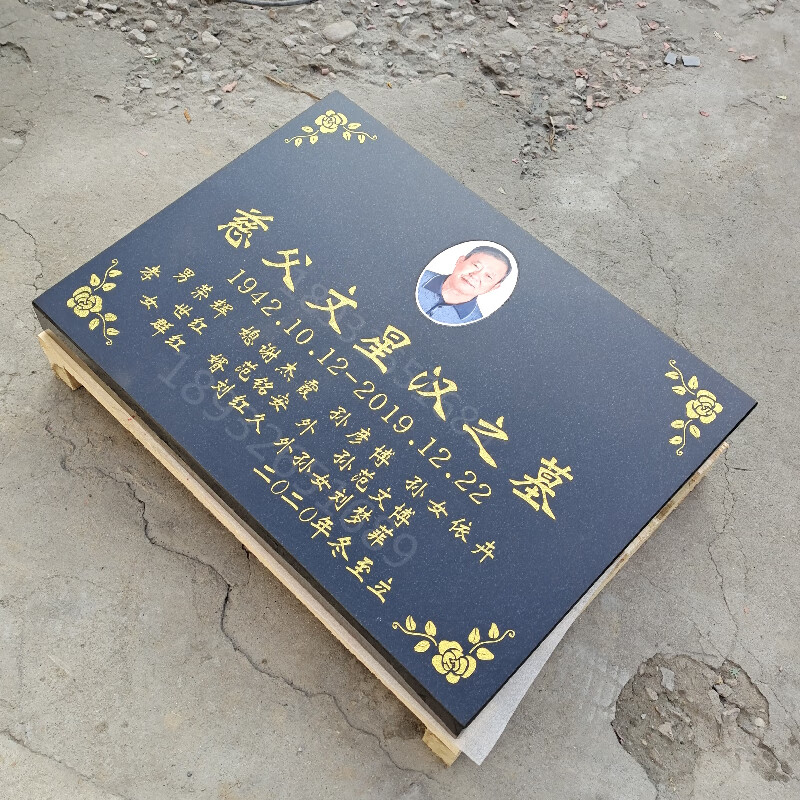 慈父文星汉之墓
1942.10.12-2019.12.22
男荣辉 媳谢杰霞 孙彦博 孙女依卉
孝 世红 婿范铭安 外孙范文博
女群红 刘红久 外孙女刘梦菲
二〇二〇年冬至立
18932651089